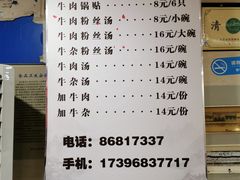 牛肉锅贴 8元/6只
牛肉粉丝汤 8元/小碗
牛肉粉丝汤 16元/大碗
牛杂粉丝汤 16元/碗
牛肉汤 14元/碗
牛杂汤 14元/碗
加牛肉 14元/份
加牛杂 14元/份
电话：86817337
手机：17396837717
清